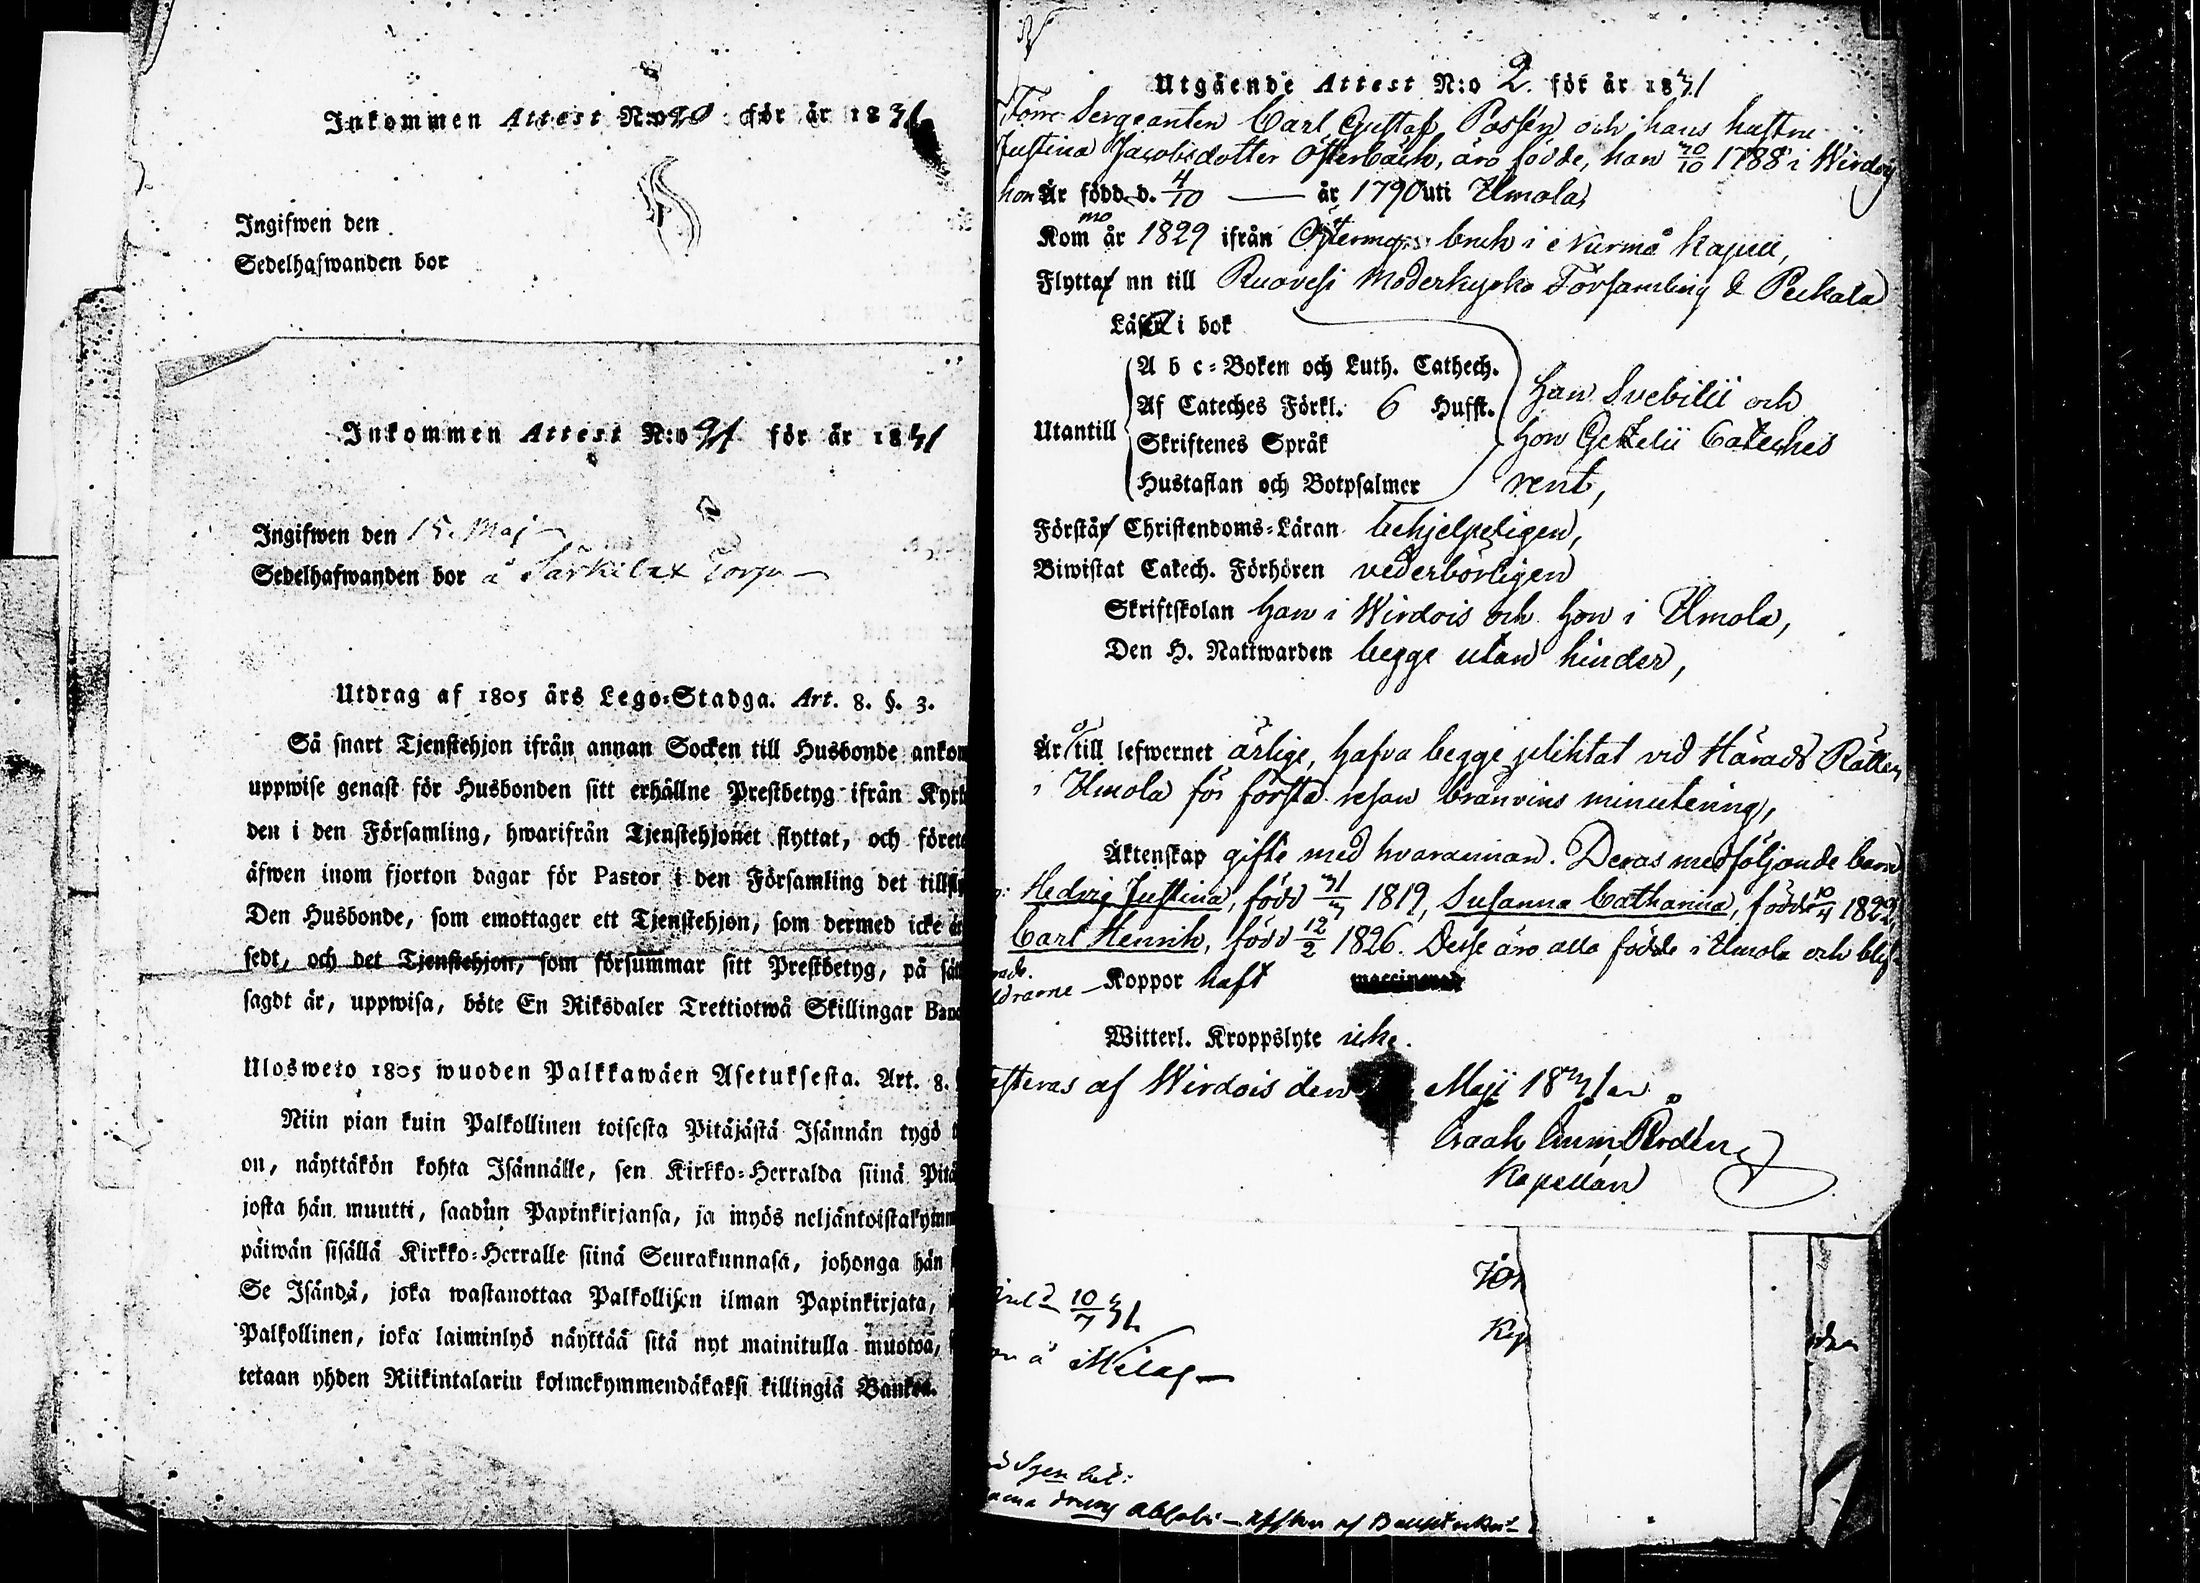 Inkommen Attest N:o 90 för år 1831
Ingifwen den
Sedelhafwanden bor
Inkommen Attest N:o 91 för år 1831
Ingifwen den 15. Maj
Sedelhafwanden bor å Särkilax Torp
Utdrag af 1805 års Lego-Stadga. Art. 8. §. 3.
Så snart Tjenstehjon ifrån annan Socken till Husbonde ankom
uppwise genast för Husbonden sitt erhållne Prestbetyg ifrån Kyrk
den i den Församling, hwarifrån Tjenstehjonet flyttat, och förete
äfwen inom fjorton dagar för Pastor i den Församling det
Den Husbonde, som emottager ett Tjenstehjon, som dermed icke är
sedt, och det Tjenstehjon, som försummar sitt Prestbetyg, på sät
sagdt är, uppwisa, böte En Riksdaler Trettiotwå Skillingar Banco
Ulosweto 1805 wuoden Palkkawäen Asetuksesta. Art. 8.
Niin pian kuin Palkollinen toisesta Pitäjästä Isännän tygö
on, näyttäkön kohta Isännälle, sen Kirkko-Herralda siinä Pitä
josta hän muutti, saadun Papinkirjansa, ja myös neljäntoistakymm
päiwän sisällä Kirkko-Herralle siinä Seurakunnasa, johonga hän
Se Isändä, joka wastanottaa Palkollisen ilman Papinkirjata,
Palkollinen, joka laiminlyö näyttää sitä nyt mainitulla muotoa,
tetaan yhden Riikintalarin kolmekymmendäkaksi killingiä Bankos.
Utgående Attest N:o 2. för år 1831
Förre Sergeanten Carl Gustaf Possén och hans hustru
Justina Jacobsdotter Österback, äro födde, han 30/10 1788 i Wirdois
hon Är född d. 4/10 — år 1790 uti Ilmola,
Kom mo år 1829 ifrån Östermyra bruk i Nurmo Kapell,
Flyttar nu till Ruovesi Moderkyrko Församling & Pekkala
Läser i bok
A b c-Boken och Luth. Cathech.
Af Cateches Förkl. 6 Hufst.
Utantill
Skriftenes Språk
Hustaflan och Botpsalmer
han Svebilii och
hon Gezelii Cateches
rent,
Förstår Christendoms-Läran behjelpeligen,
Biwistat Catech. Förhören vederbörligen
Skriftskolan han i Wirdois och hon i Ilmola,
Den H. Nattwarden begge utan hinder,
Är o till lefwernet ärlige, hafva begge pliktat vid Härads Rätten
i Ilmola för första resan bränvins minutering,
Äktenskap gifte med hvarannan. Deras medföljande barn
Hedvig Justina, född 31/3 1819, Susanna Catharina, född 10/4 1822,
Carl Henrik, född 12/2 1826. Desse äro alla födde i Ilmola och blif
Koppor haft
Witterl. Kroppslyte icke.
esteras af Wirdois den Maji 1831 af
Kapellan
10/7 31
å